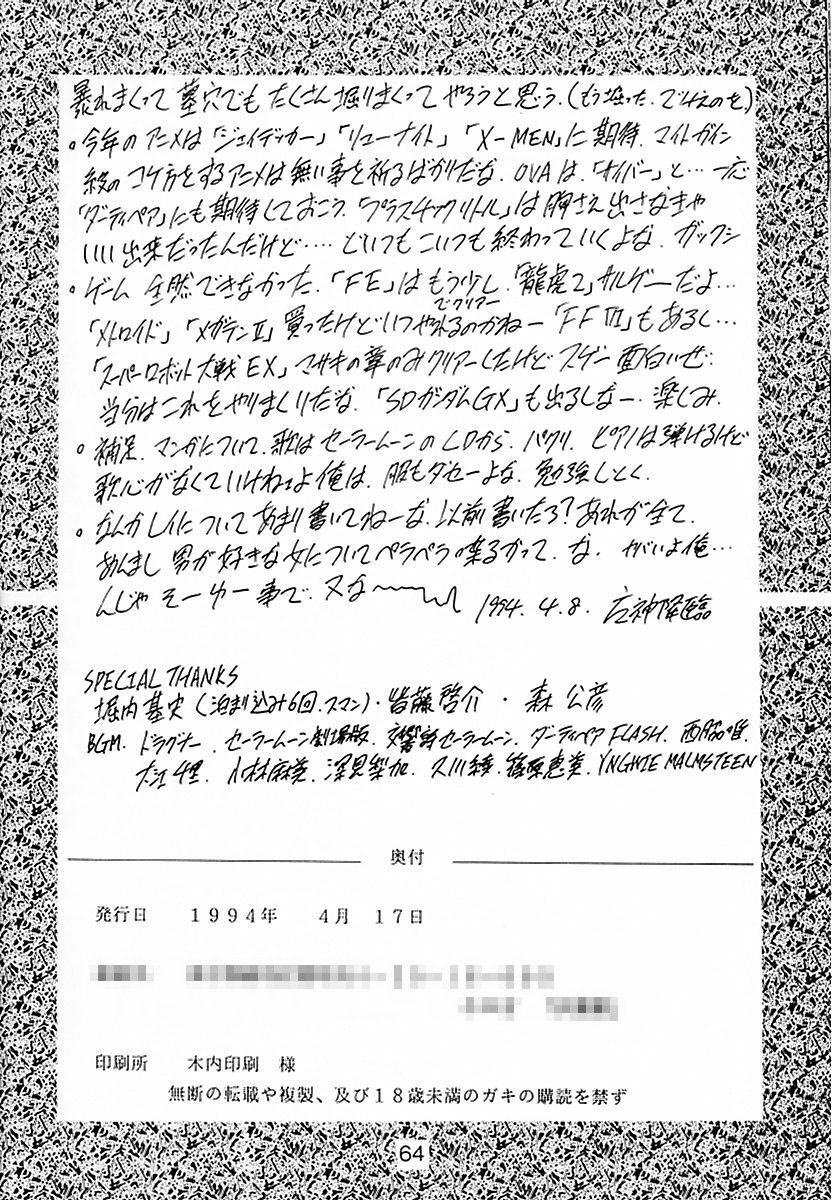 暴れまくって墓穴でもたくさん堀りまくってやろうと思う.(もう堀った.でけえのを)
。今年のアニメは「ジェイデッカー」「リューナイト」「X-MEN」に期待.マイトガイン
級のコケ方をするアニメは無い事を祈るばかりだな.OVAは.「ガイバー」と…一応
「ダーティペア」にも期待しておこう.「プラスチックリトル」は胸さえ出さなきゃ
いい出来だったんだけど‥‥どいつもこいつも終わっていくよな.ガックシ
。ゲーム全然できなかった.「FE」はもう少し.「龍虎2」サルゲーだよ…
でクリアー
「メトロイド」「メガテンⅡ」買ったけどいつやれるのかねー「FFⅥ」もあるし…
「スーパーロボット大戦EX」マサキの章のみクリアーしたけどスゲー面白いぜ.
当分はこれをやりまくりだな.「SDガンダムGX」も出るしなー.楽しみ.
。補足.マンガについて.歌はセーラームーンのLDから.パクリ.ピアノは弾けるけど
歌心がなくていけねェよ俺は.服もダセーよな.勉強しとく.
。なんかレイについてあまり書いてねーな.以前書いたろ?あれが全て.
あんまし男が好きな女についてペラペラ喋るかって.な.ヤバいよ俺…
んじゃそーゆー事で.又な〜
1994.4.8.
SPECIAL THANKS
堀内基史(泊まり込み6回.スマン)・皆藤啓介・森公彦
BGM.ドラグナー.セーラームーン劇場版.交響詩セーラームーン.ダーティペアFLASH.西脇唯.
大江千里.小林麻美.深見梨加.久川綾.篠原恵美.YNGWIE MALMSTEEN
奥付
発行日 1994年 4月 17日
印刷所 木内印刷 様
無断の転載や複製、及び18歳未満のガキの購読を禁ず
64